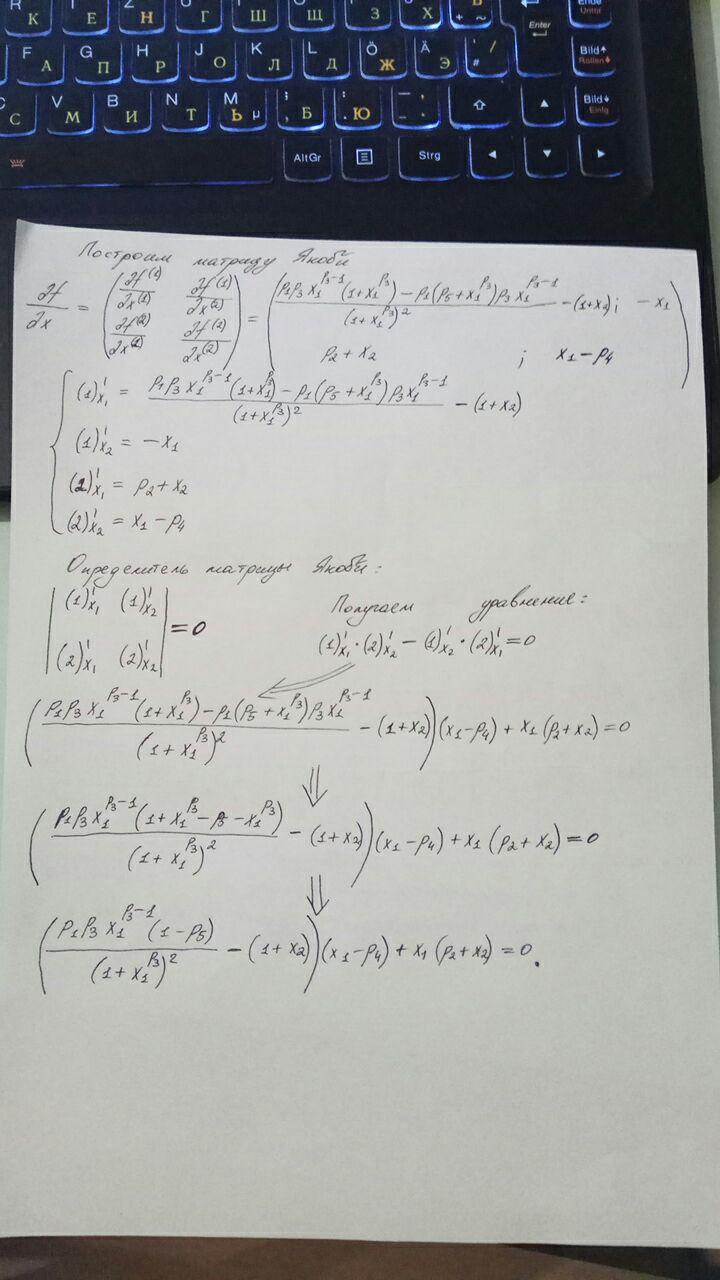 R К T Е Z Н U Г I Ш O Щ P З Ü Х + ~ Enter Ende
F А G П H Р J О K Л L Д Ö Ж Ä Э ' / # Bild↑ Rollen↓
C С V М B И N Т M Ь µ ; , Б : . Ю _ - ⇧ ▲ Bild↓ Einfg
AltGr Strg ◄ ▼ ►
Построим матрицу Якоби
∂f/∂x = (∂f⁽¹⁾/∂x⁽¹⁾ ∂f⁽¹⁾/∂x⁽²⁾ ; ∂f⁽²⁾/∂x⁽¹⁾ ∂f⁽²⁾/∂x⁽²⁾) = ((p₁p₃x₁^(p₃-1)(1+x₁^p₃) - p₁(p₅+x₁^p₃)p₃x₁^(p₃-1))/(1+x₁^p₃)² - (1+x₂); -x₁
p₂+x₂ ; x₁-p₄)
{ (1)'x₁ = (p₁p₃x₁^(p₃-1)(1+x₁^p₃) - p₁(p₅+x₁^p₃)p₃x₁^(p₃-1))/(1+x₁^p₃)² - (1+x₂)
(1)'x₂ = -x₁
(2)'x₁ = p₂+x₂
(2)'x₂ = x₁-p₄
Определитель матрицы Якоби:
|(1)'x₁ (1)'x₂ ; (2)'x₁ (2)'x₂| = 0
Получаем уравнение:
(1)'x₁·(2)'x₂ - (1)'x₂·(2)'x₁ = 0
((p₁p₃x₁^(p₃-1)(1+x₁^p₃) - p₁(p₅+x₁^p₃)p₃x₁^(p₃-1))/(1+x₁^p₃)² - (1+x₂))(x₁-p₄) + x₁(p₂+x₂) = 0
⇓
((p₁p₃x₁^(p₃-1)(1+x₁^p₃-p₅-x₁^p₃))/(1+x₁^p₃)² - (1+x₂))(x₁-p₄) + x₁(p₂+x₂) = 0
⇓
((p₁p₃x₁^(p₃-1)(1-p₅))/(1+x₁^p₃)² - (1+x₂))(x₁-p₄) + x₁(p₂+x₂) = 0.